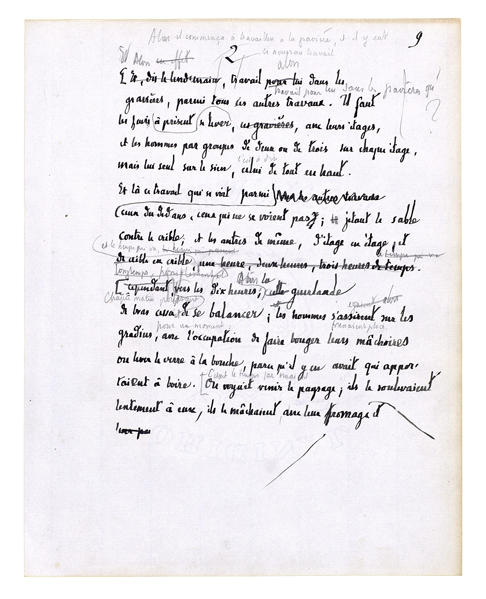 Alors il commença à travailler à la gravière, et il y eut
ce nouveau travail
9
Et Alors en effet
2
alors
Et, dès le lendemain, travail pour lui dans les
travail pour lui dans les gravières qui
?
gravières, parmi tous les autres travaux. Il faut
les à présent se lever, ces gravières, avec leurs étages,
et les hommes par groupes de deux ou de trois sur chaque étage,
mais lui seul sur le sien, celui de tout en haut.
Et là ce travail qui se voit parmi tous les autres travaux
(ceux du dedans, ceux qui ne se voient pas); jetant le sable
contre le crible, et les autres de même, d'étage en étage, et
de crible en crible, une heure, deux heures, trois heures de temps.
longtemps,
Alors la
Cependant vers les dix heures, cette guirlande
Chaque matin
de bras cessa de se balancer; les hommes s'assirent sur les
pour un moment
gradins, avec l'occupation de faire bouger leurs mâchoires
ou lever le verre à la bouche, parce qu'il y en avait qui appor-
taient à boire. On voyait venir le paysage; ils le soulevaient
lentement à eux, ils le mâchaient, avec leur fromage et
leur pa